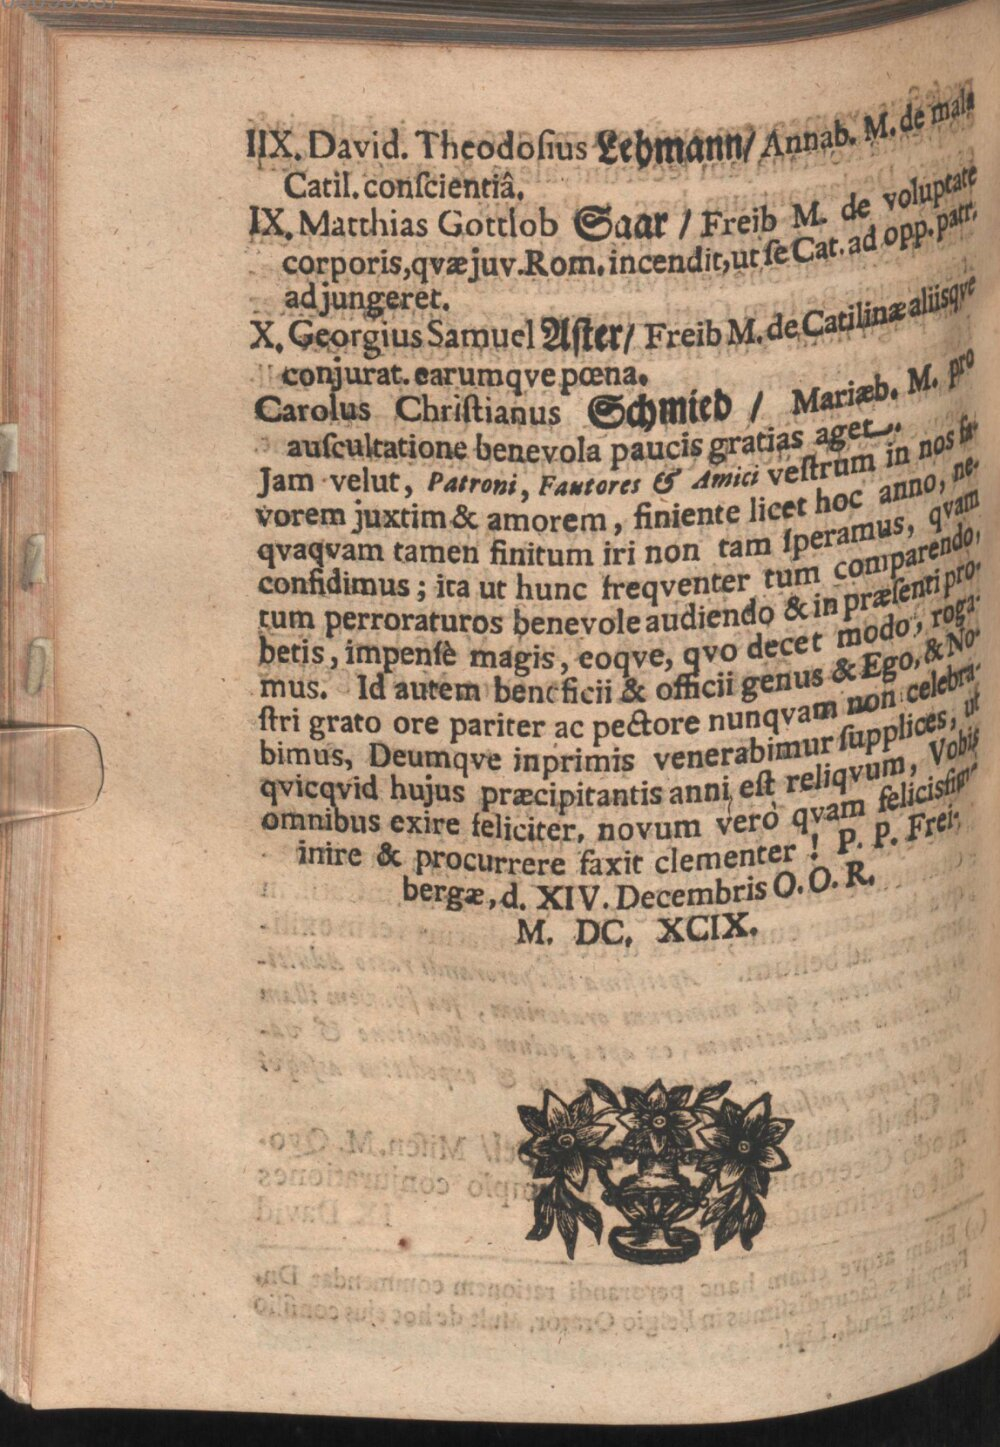 IIX. David. Theodoſius Lehmann/ Annab. M. de mala
Catil. conſcientiâ.
IX. Matthias Gottlob Saar / Freib M. de voluptate
corporis, qvæ juv. Rom. incendit, ut ſe Cat. ad opp. patr.
adjungeret.
X. Georgius Samuel Aſter/ Freib M. de Catilinæ aliisqve
conjurat. earumqve pœna.
Carolus Chriſtianus Schmied / Mariæb. M. pro
auſcultatione benevola paucis gratias aget.
Jam velut, Patroni, Fautores & Amici veſtrum in nos fa-
vorem juxtim & amorem, finiente licet hoc anno, ne-
qvaqvam tamen finitum iri non tam ſperamus, qvam
confidimus; ita ut hunc freqventer tum comparendo,
tum perroraturos benevole audiendo & in præſenti pro-
betis, impenſè magis, eoqve, qvo decet modo, roga-
mus. Id autem beneficii & officii genus & Ego, & No-
ſtri grato ore pariter ac pectore nunqvam non celebra-
bimus, Deumqve inprimis venerabimur ſupplices, ut
qvicqvid hujus præcipitantis anni eſt reliqvum, Vobis
omnibus exire feliciter, novum verò qvam feliciſſime
inire & procurrere faxit clementer! P. P. Frei-
bergæ, d. XIV. Decembris O. O. R.
M. DC. XCIX.